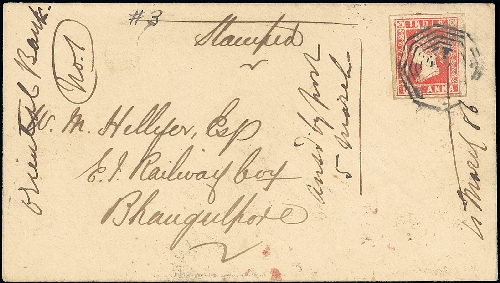 #3
Stamped
Oriental Bank
No. 1
W. M. Hellyer, Esp
E. I. Railway Coy
Bhaugulpore
ansd by post
5 March
INDIA
ONE ANNA
March 56